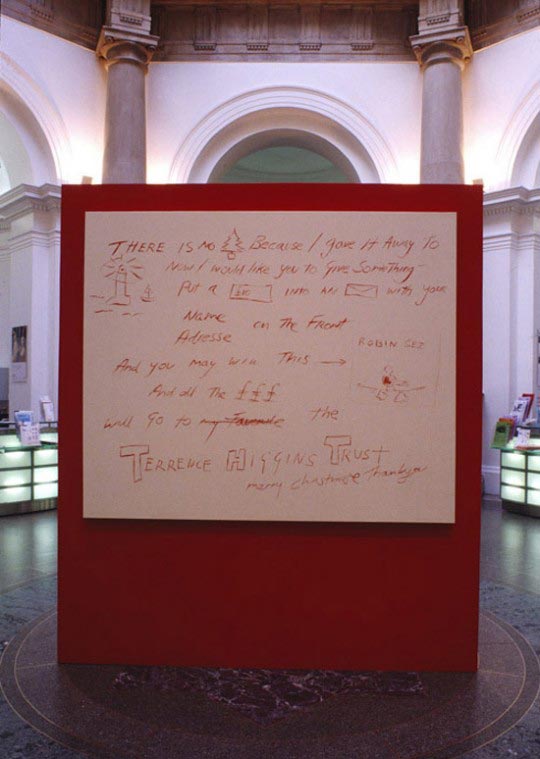 THERE IS NO Because I gave it Away To
Now I would like you to give Something
Put a £10 INTO AN with your
Name on The Front
Adresse
ROBIN SEZ
And you may win THIS
And all The £££
will Go to my Favourite the
TERRENCE HIGGINS TRUST
merry christmas thankyou